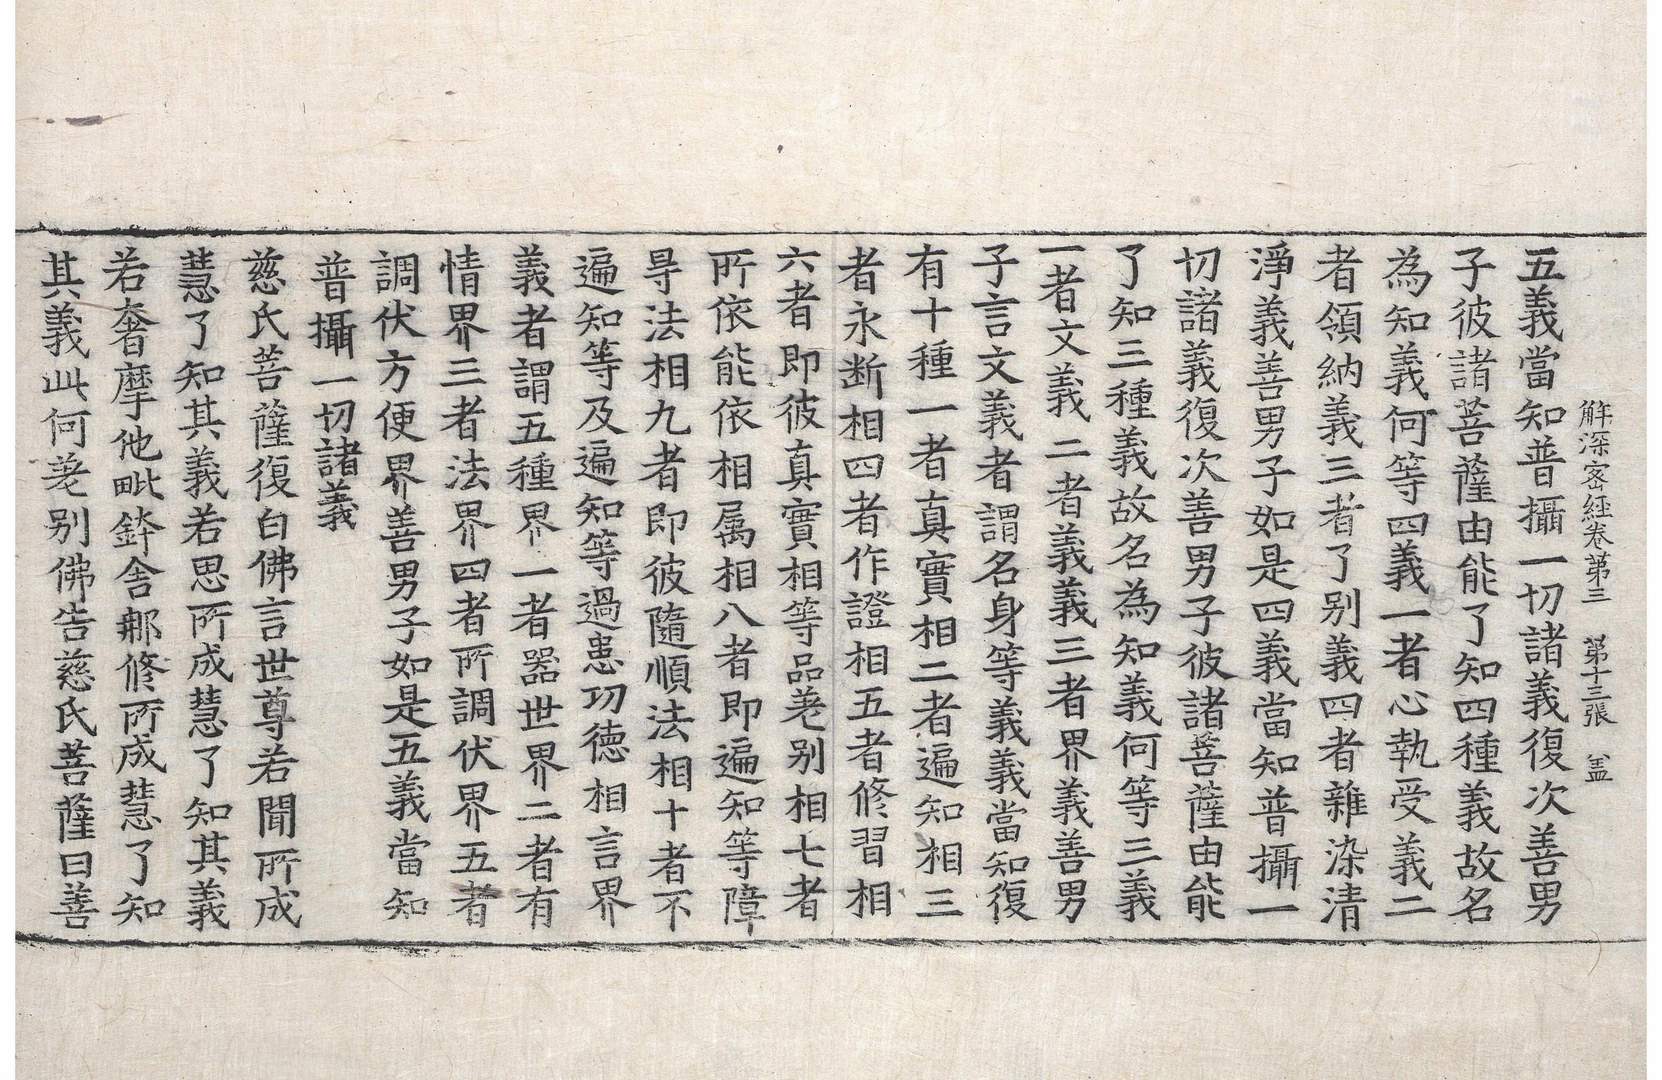 解深密經卷第三 第十三張 盖
五義當知普攝一切諸義復次善男
子彼諸菩薩由能了知四種義故名
為知義何等四義一者心執受義二
者領納義三者了别義四者雜染清
淨義善男子如是四義當知普攝一
切諸義復次善男子彼諸菩薩由能
了知三種義故名為知義何等三義
一者文義二者義義三者界義善男
子言文義者謂名身等義義當知復
有十種一者真實相二者遍知相三
者永断相四者作證相五者修習相
六者即彼真實相等品差别相七者
所依能依相属相八者即遍知等障
㝵法相九者即彼隨順法相十者不
遍知等及遍知等過患功德相言界
義者謂五種界一者器世界二者有
情界三者法界四者所調伏界五者
調伏方便界善男子如是五義當知
普攝一切諸義
慈氏菩薩復白佛言世尊若聞所成
慧了知其義若思所成慧了知其義
若奢摩他毗鉢舍那修所成慧了知
其義此何差别佛告慈氏菩薩曰善